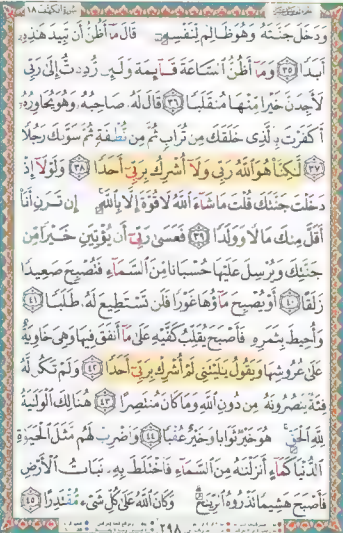 سورة الكهف ١٨
وَدَخَلَ جَنَّتَهُ وَهُوَ ظَالِمٌ لِنَفْسِهِ قَالَ مَا أَظُنُّ أَنْ تَبِيدَ هَذِهِ
أَبَدًا ﴿٣٥﴾ وَمَا أَظُنُّ السَّاعَةَ قَائِمَةً وَلَئِنْ رُدِدْتُ إِلَى رَبِّي
لَأَجِدَنَّ خَيْرًا مِنْهَا مُنْقَلَبًا ﴿٣٦﴾ قَالَ لَهُ صَاحِبُهُ وَهُوَ يُحَاوِرُهُ
أَكَفَرْتَ بِالَّذِي خَلَقَكَ مِنْ تُرَابٍ ثُمَّ مِنْ نُطْفَةٍ ثُمَّ سَوَّاكَ رَجُلًا
﴿٣٧﴾ لَكِنَّا هُوَ اللَّهُ رَبِّي وَلَا أُشْرِكُ بِرَبِّي أَحَدًا ﴿٣٨﴾ وَلَوْلَا إِذْ
دَخَلْتَ جَنَّتَكَ قُلْتَ مَا شَاءَ اللَّهُ لَا قُوَّةَ إِلَّا بِاللَّهِ إِنْ تَرَنِ أَنَا
أَقَلَّ مِنْكَ مَالًا وَوَلَدًا ﴿٣٩﴾ فَعَسَى رَبِّي أَنْ يُؤْتِيَنِ خَيْرًا مِنْ
جَنَّتِكَ وَيُرْسِلَ عَلَيْهَا حُسْبَانًا مِنَ السَّمَاءِ فَتُصْبِحَ صَعِيدًا
زَلَقًا ﴿٤٠﴾ أَوْ يُصْبِحَ مَاؤُهَا غَوْرًا فَلَنْ تَسْتَطِيعَ لَهُ طَلَبًا ﴿٤١﴾
وَأُحِيطَ بِثَمَرِهِ فَأَصْبَحَ يُقَلِّبُ كَفَّيْهِ عَلَى مَا أَنْفَقَ فِيهَا وَهِيَ خَاوِيَةٌ
عَلَى عُرُوشِهَا وَيَقُولُ يَا لَيْتَنِي لَمْ أُشْرِكْ بِرَبِّي أَحَدًا ﴿٤٢﴾ وَلَمْ تَكُنْ لَهُ
فِئَةٌ يَنْصُرُونَهُ مِنْ دُونِ اللَّهِ وَمَا كَانَ مُنْتَصِرًا ﴿٤٣﴾ هُنَالِكَ الْوَلَايَةُ
لِلَّهِ الْحَقِّ هُوَ خَيْرٌ ثَوَابًا وَخَيْرٌ عُقْبًا ﴿٤٤﴾ وَاضْرِبْ لَهُمْ مَثَلَ الْحَيَوةِ
الدُّنْيَا كَمَاءٍ أَنْزَلْنَاهُ مِنَ السَّمَاءِ فَاخْتَلَطَ بِهِ نَبَاتُ الْأَرْضِ
فَأَصْبَحَ هَشِيمًا تَذْرُوهُ الرِّيَاحُ وَكَانَ اللَّهُ عَلَى كُلِّ شَيْءٍ مُقْتَدِرًا ﴿٤٥﴾
٢٩٨